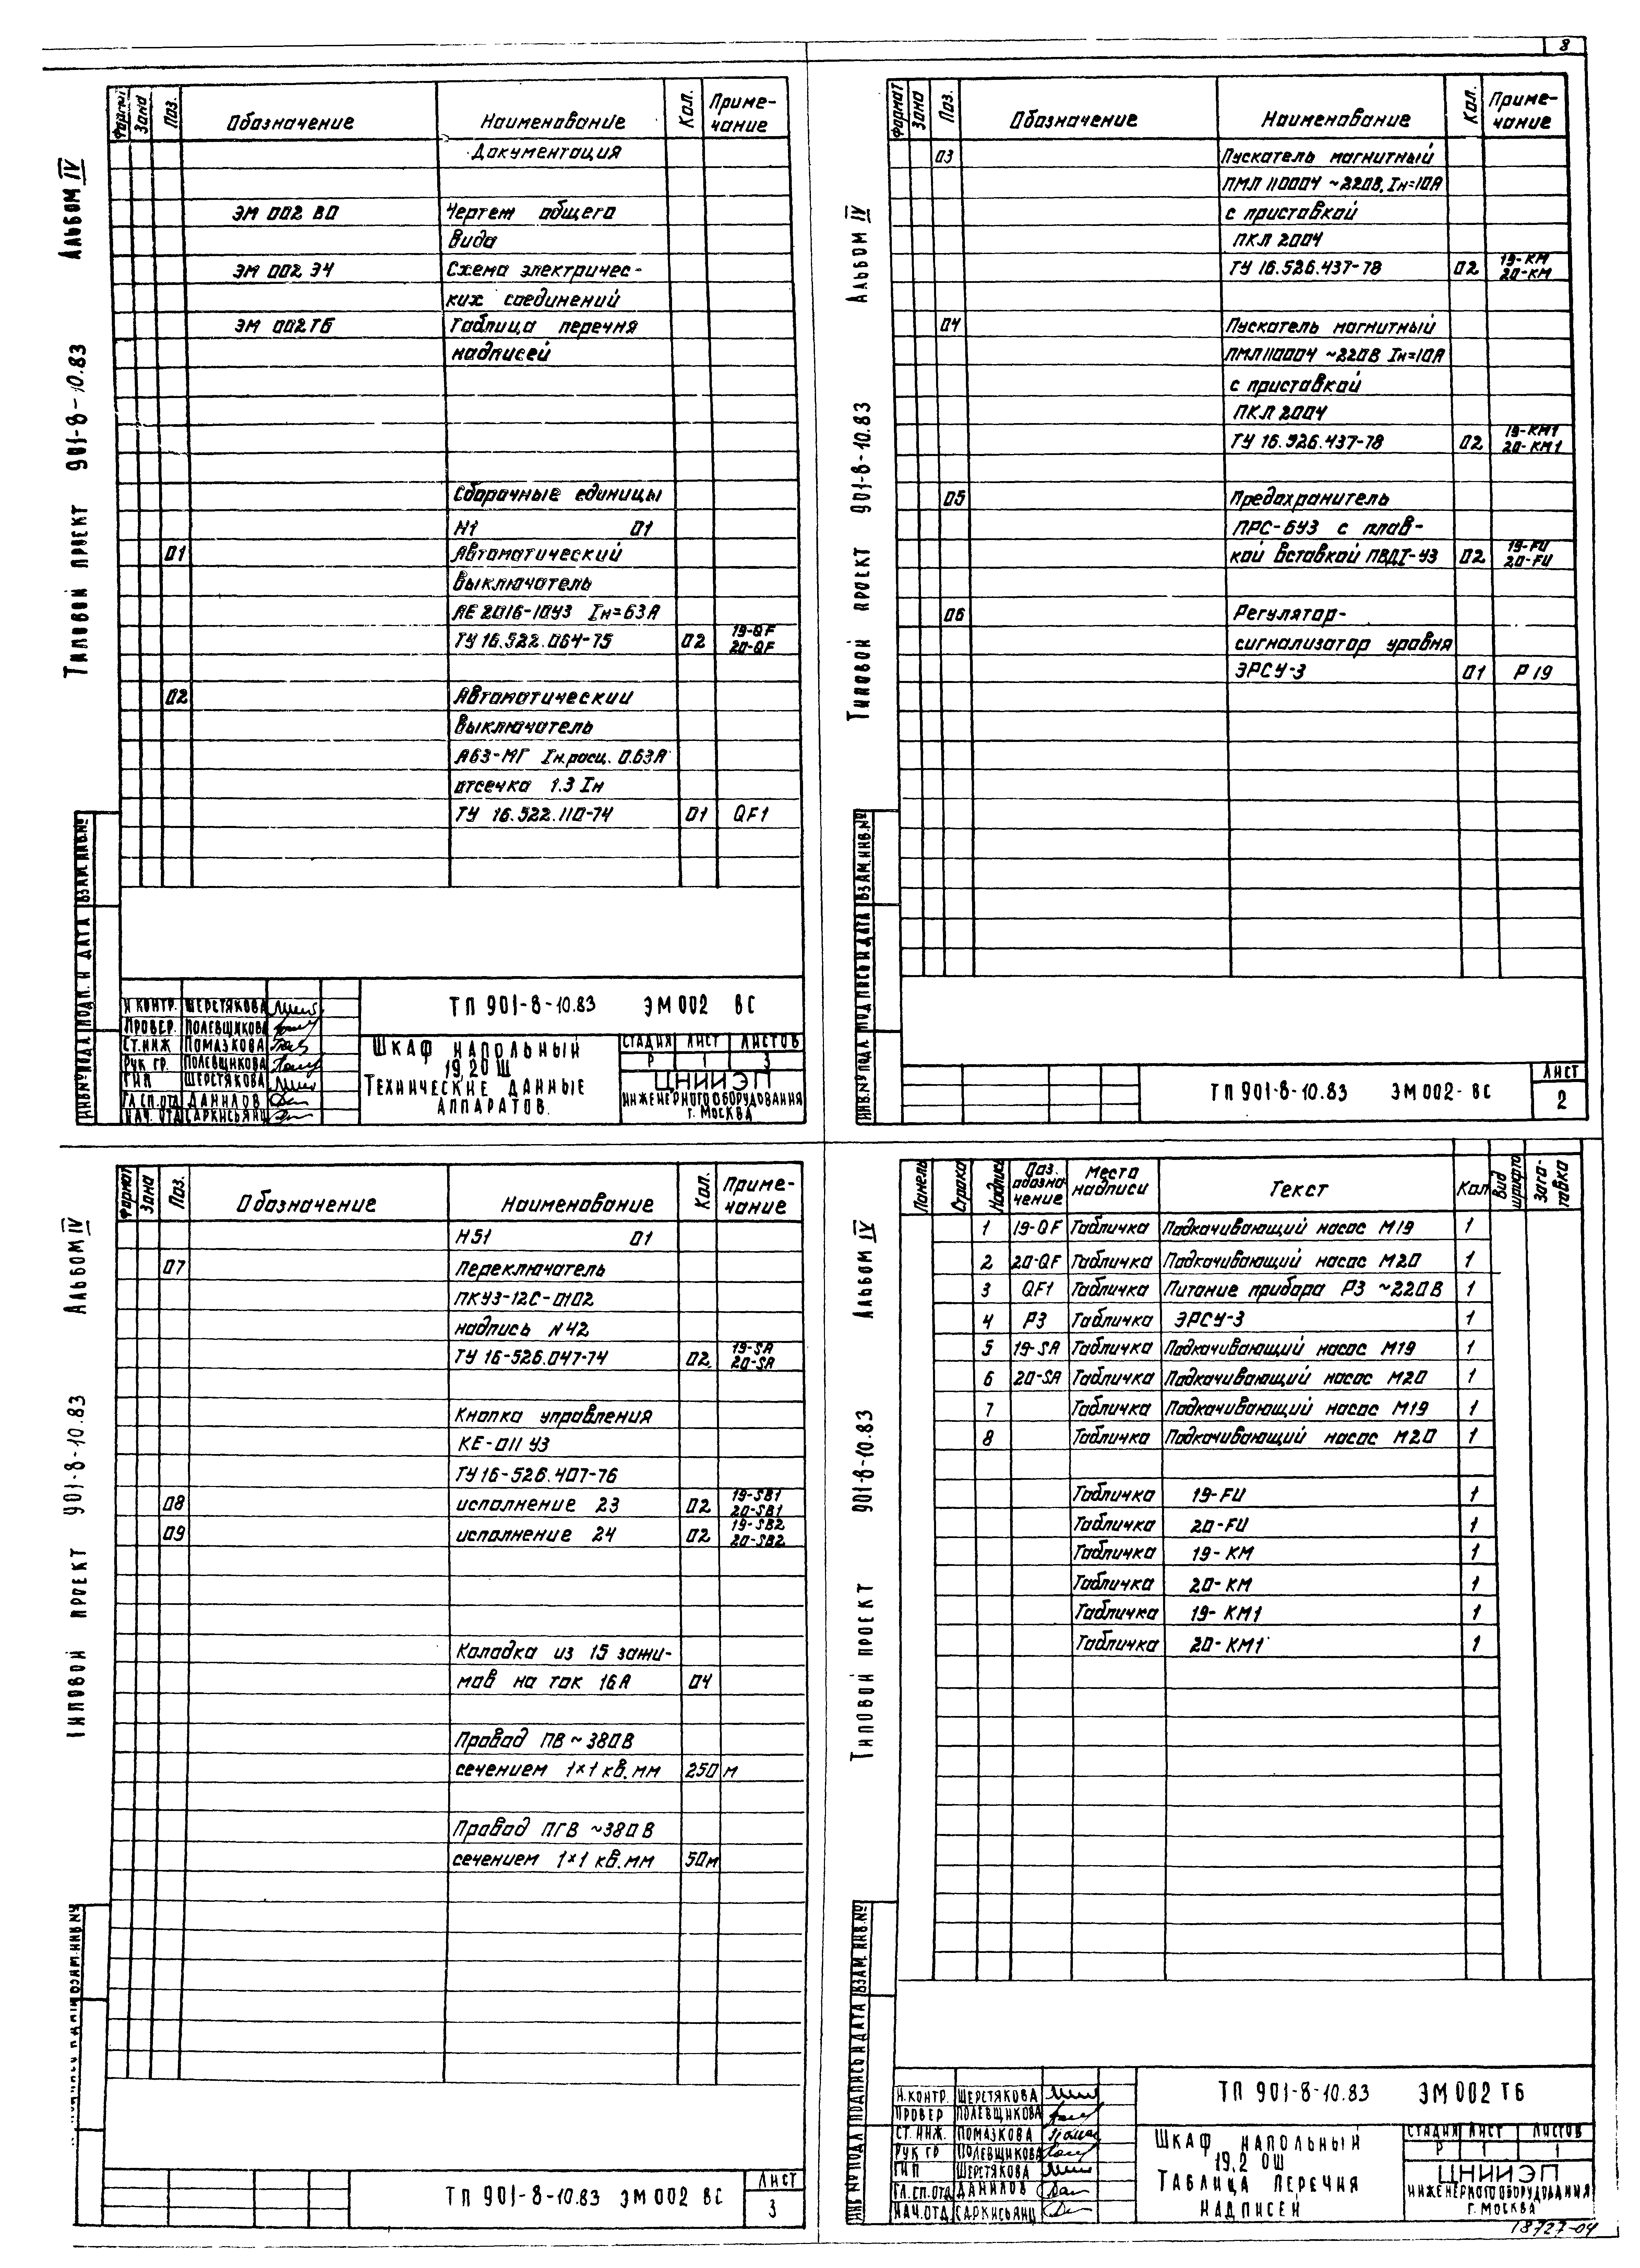 8
Альбом IV
Типовой проект 901-8-10.83
Формат Зона Поз. Обозначение Наименование Кол. Приме-
чание
Документация
ЭМ 002 ВО Чертеж общего
вида
ЭМ 002 Э4 Схема электричес-
ких соединений
ЭМ 002ТБ Таблица перечня
надписей
Сборочные единицы
Н1 01
01 Автоматический
выключатель
АЕ 2016-10У3 Iн=63А
ТУ 16.522.064-75 02 19-QF
20-QF
02 Автоматический
выключатель
А63-МГ Iн.расц. 0.63А
отсечка 1.3 Iн
ТУ 16.522.110-74 01 QF1
ИНВ.№ПОДЛ ПОДП. И ДАТА ВЗАМ.ИНВ.№
Н КОНТР. ШЕРСТЯКОВА
ПРОВЕР. ПОЛЕВЩИКОВА
СТ.ИНЖ ПОМАЗКОВА
РУК ГР. ПОЛЕВЩИКОВА
ГИП ШЕРСТЯКОВА
ГЛ.СП.ОТД ДАНИЛОВ
НАЧ. ОТД САРКИСЬЯНЦ
ТП 901-8-10.83 ЭМ 002 ВС
ШКАФ НАПОЛЬНЫЙ
19,20 Ш
ТЕХНИЧЕСКИЕ ДАННЫЕ
АППАРАТОВ.
СТАДИЯ ЛИСТ ЛИСТОВ
Р 1 3
ЦНИИЭП
ИНЖЕНЕРНОГО ОБОРУДОВАНИЯ
г. МОСКВА
Альбом IV
Типовой проект 901-8-10.83
Формат Зона Поз. Обозначение Наименование Кол. Приме-
чание
03 Пускатель магнитный
ПМЛ 110004 ~220В, Iн=10А
с приставкой
ПКЛ 2004
ТУ 16.526.437-78 02 19-КМ
20-КМ
04 Пускатель магнитный
ПМЛ 110004 ~220В Iн=10А
с приставкой
ПКЛ 2004
ТУ 16.526.437-78 02 19-КМ1
20-КМ1
05 Предохранитель
ПРС-6У3 с плав-
кой вставкой ПВДI-У3 02 19-FU
20-FU
06 Регулятор-
сигнализатор уровня
ЭРСУ-3 01 Р 19
ИНВ.№ПОДЛ ПОДПИСЬ И ДАТА ВЗАМ.ИНВ.№
ТП 901-8-10.83 ЭМ 002- ВС
ЛИСТ
2
Альбом IV
Типовой проект 901-8-10.83
Формат Зона Поз. Обозначение Наименование Кол. Приме-
чание
Н51 01
07 Переключатель
ПКУ3-12С-0102
надпись N42
ТУ 16-526.047-74 02 19-SA
20-SA
Кнопка управления
КЕ-011 У3
ТУ 16-526.407-76
08 исполнение 23 02 19-SB1
20-SB1
09 исполнение 24 02 19-SB2
20-SB2
Колодка из 15 зажи-
мов на ток 16А 04
Провод ПВ ~ 380В
сечением 1×1 кв.мм 250 м
Провод ПГВ ~380 В
сечением 1×1 кв.мм 50м
ТП 901-8-10.83 ЭМ 002 ВС
ЛИСТ
3
Альбом IV
Типовой проект 901-8-10.83
Панель Строка Надпись Поз.
обозна-
чение Место
надписи Текст Кол Вид
шрифта Заго-
товка
1 19-QF Табличка Подкачивающий насос М19 1
2 20-QF Табличка Подкачивающий насос М20 1
3 QF1 Табличка Питание прибора Р3 ~220В 1
4 Р3 Табличка ЭРСУ-3 1
5 19-SA Табличка Подкачивающий насос М19 1
6 20-SA Табличка Подкачивающий насос М20 1
7 Табличка Подкачивающий насос М19 1
8 Табличка Подкачивающий насос М20 1
Табличка 19-FU 1
Табличка 20-FU 1
Табличка 19- КМ 1
Табличка 20- КМ 1
Табличка 19- КМ1 1
Табличка 20- КМ1 1
ИНВ №ПОДЛ ПОДПИСЬ И ДАТА ВЗАМ. ИНВ.№
Н.КОНТР. ШЕРСТЯКОВА
ПРОВЕР ПОЛЕВЩИКОВА
СТ. ИНЖ. ПОМАЗКОВА
РУК ГР ПОЛЕВЩИКОВА
ГИП ШЕРСТЯКОВА
ГЛ.СП.ОТД ДАНИЛОВ
НАЧ.ОТД САРКИСЬЯНЦ
ТП 901-8-10.83 ЭМ 002 ТБ
ШКАФ НАПОЛЬНЫЙ
19,2 0Ш
ТАБЛИЦА ПЕРЕЧНЯ
НАДПИСЕЙ
СТАДИЯ ЛИСТ ЛИСТОВ
Р 1 1
ЦНИИЭП
ИНЖЕНЕРНОГО ОБОРУДОВАНИЯ
г. МОСКВА
18727-04